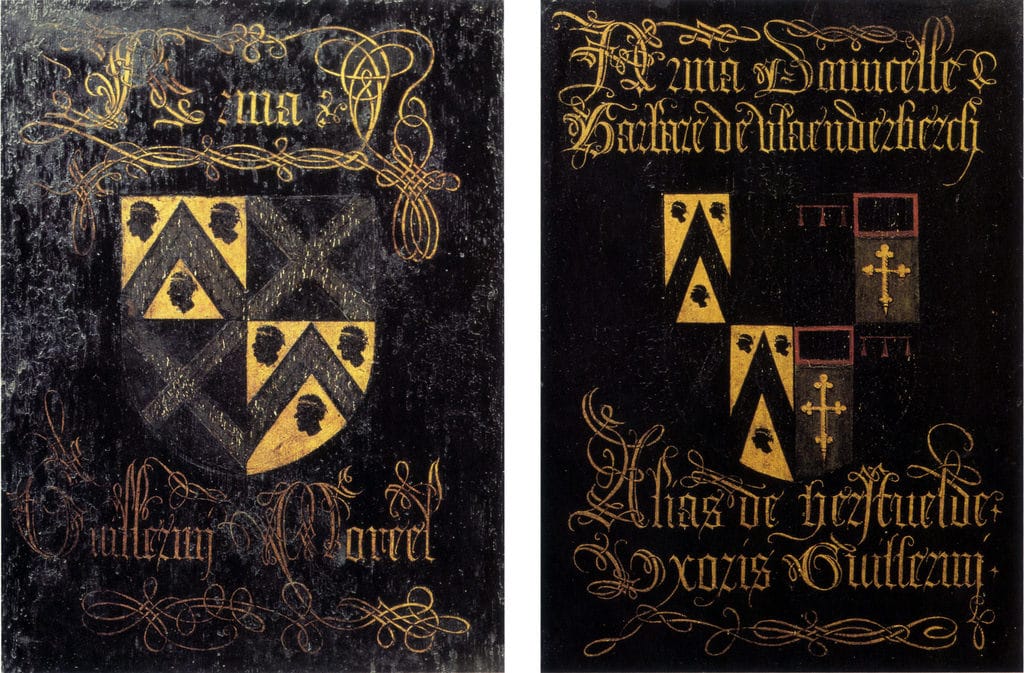 Arma
Guillermj Moreel
Arma Domicelle
Barbare de vlaenderberch
Alias de herstuelde
Vxoris Guillermj